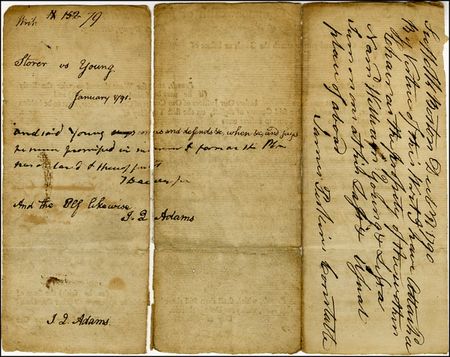 Writ. № 152 /79
Storer vs Young.
January 1791.
and said Young comes and defends &c, when &c, and says
he never promised in manner & form as the Pln
has declared & thereof puts
And the Plf likewise
J. Q Adams
J. Q Adams.
Suffolk ss Boston Decr 29 1790
By Virtue of this Writ I have Attached
a Chair as the property of the within
Named William Young & left a
Summons at his last & Usual
place of abode
James Perkins Constable